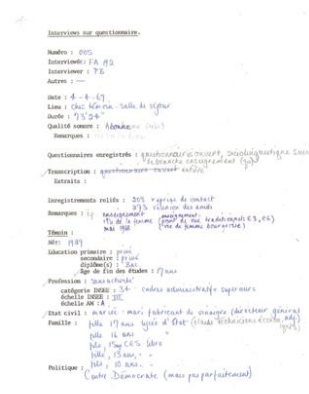 Interviews sur questionnaire.
Numéro : 005
Interviewé : FA 192
Interviewer : PB
Autres : —
Date : 4-4-69
Lieu : Chez témoin - salle de séjour
Durée : 73'24"
Qualité sonore :
Remarques :
Questionnaires enregistrés : questionnaire ouvert, sociolinguistique sans
enseignement
Transcription : questionnaire ouvert
Extraits :
Enregistrements reliés : 208 reprise de contact
273 réunion des amis
Remarques : enseignement
de la femme
mai 1968
Témoin :
Né : 1927
Education primaire : privé
secondaire : privé
diplôme(s) : Bac
Age de fin des études : 17 ans
Profession : sans activité
catégorie INSEE : 34 cadres administratifs supérieurs
échelle INSEE : III
échelle AM : A
Etat civil : mariée - mari fabricant de vinaigre (directeur général)
Famille : fille 17 ans lycée d'Etat
fille 16 ans "
fils, 15 ans CES libre
fils, 13 ans, - -
fils, 10 ans, -
Politique :
Centre Démocrate (mais pas parfaitement)